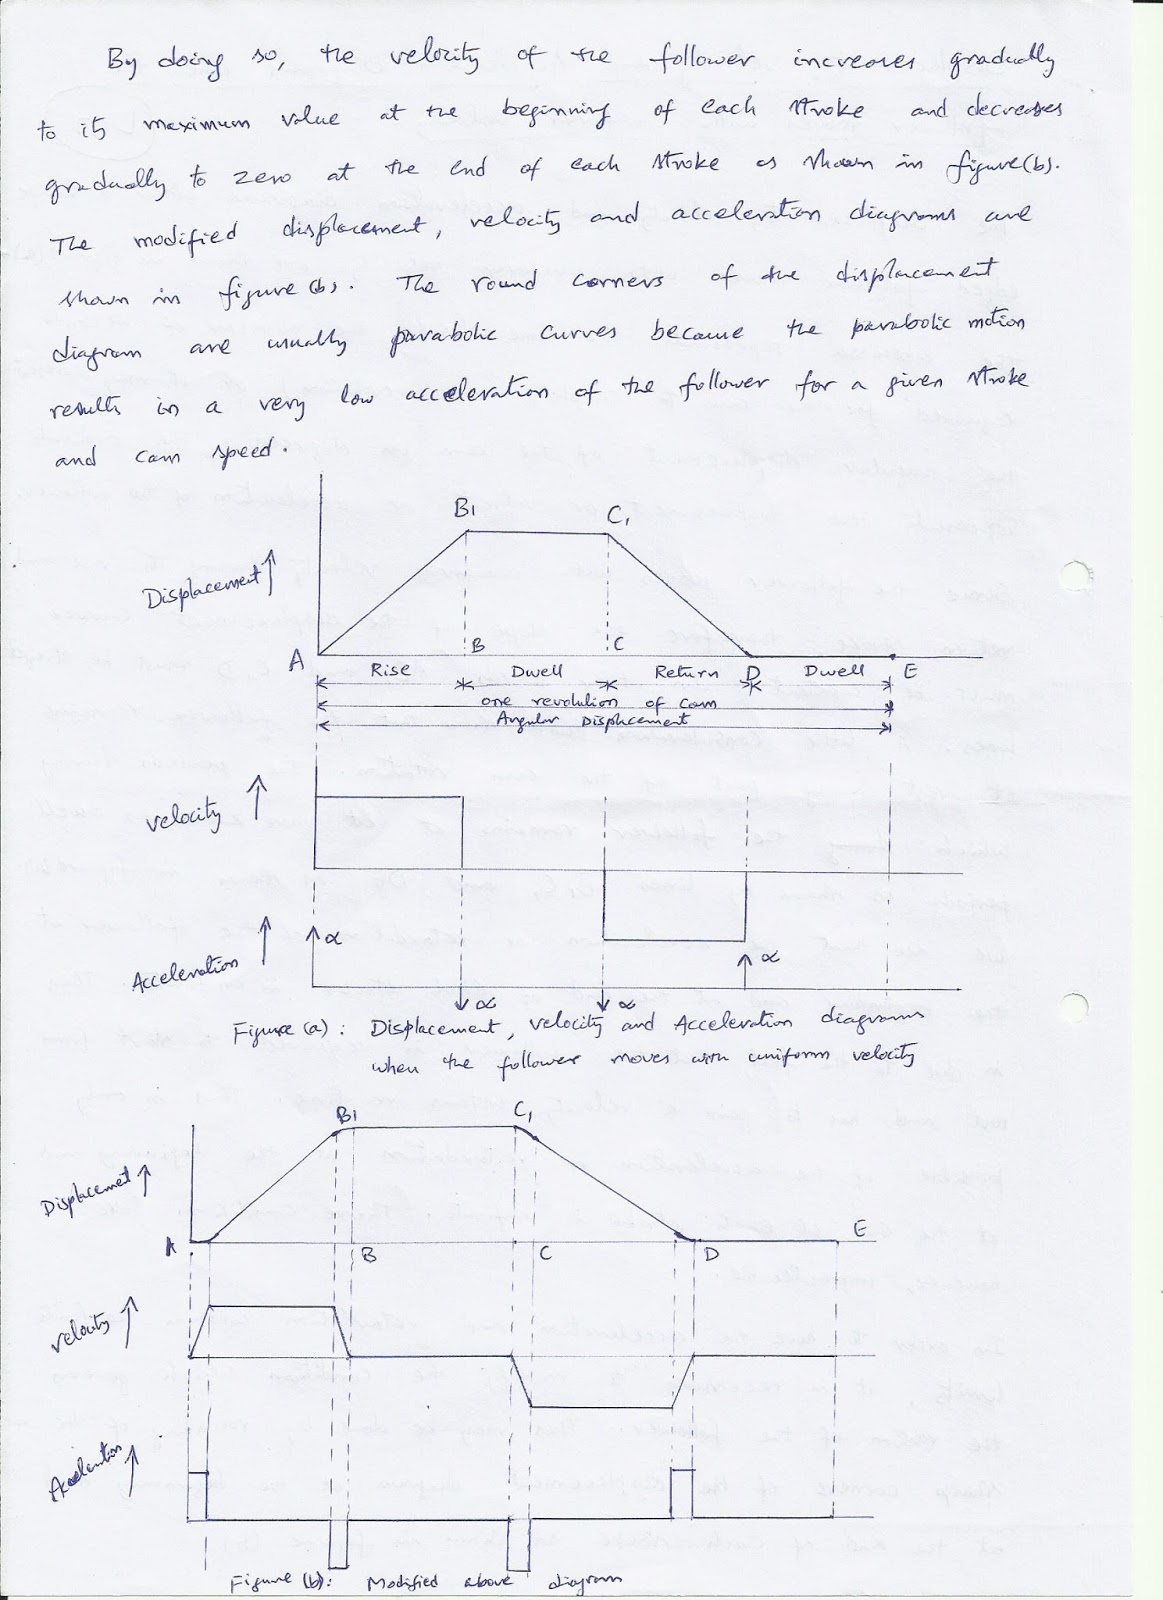 By doing so, the velocity of the follower increases gradually
to its maximum value at the beginning of each stroke and decreases
gradually to zero at the end of each stroke as shown in figure(b).
The modified displacement, velocity and acceleration diagrams are
shown in figure(b). The round corners of the displacement
diagram are usually parabolic curves because the parabolic motion
results in a very low acceleration of the follower for a given stroke
and cam speed.
B1 C1
Displacement
A B C D E
Rise Dwell Return Dwell
one revolution of cam
Angular Displacement
velocity
Acceleration
α α α α
Figure (a) : Displacement, velocity and Acceleration diagrams
when the follower moves with uniform velocity
B1 C1
Displacement
A B C D E
velocity
Acceleration
Figure (b): Modified above diagram